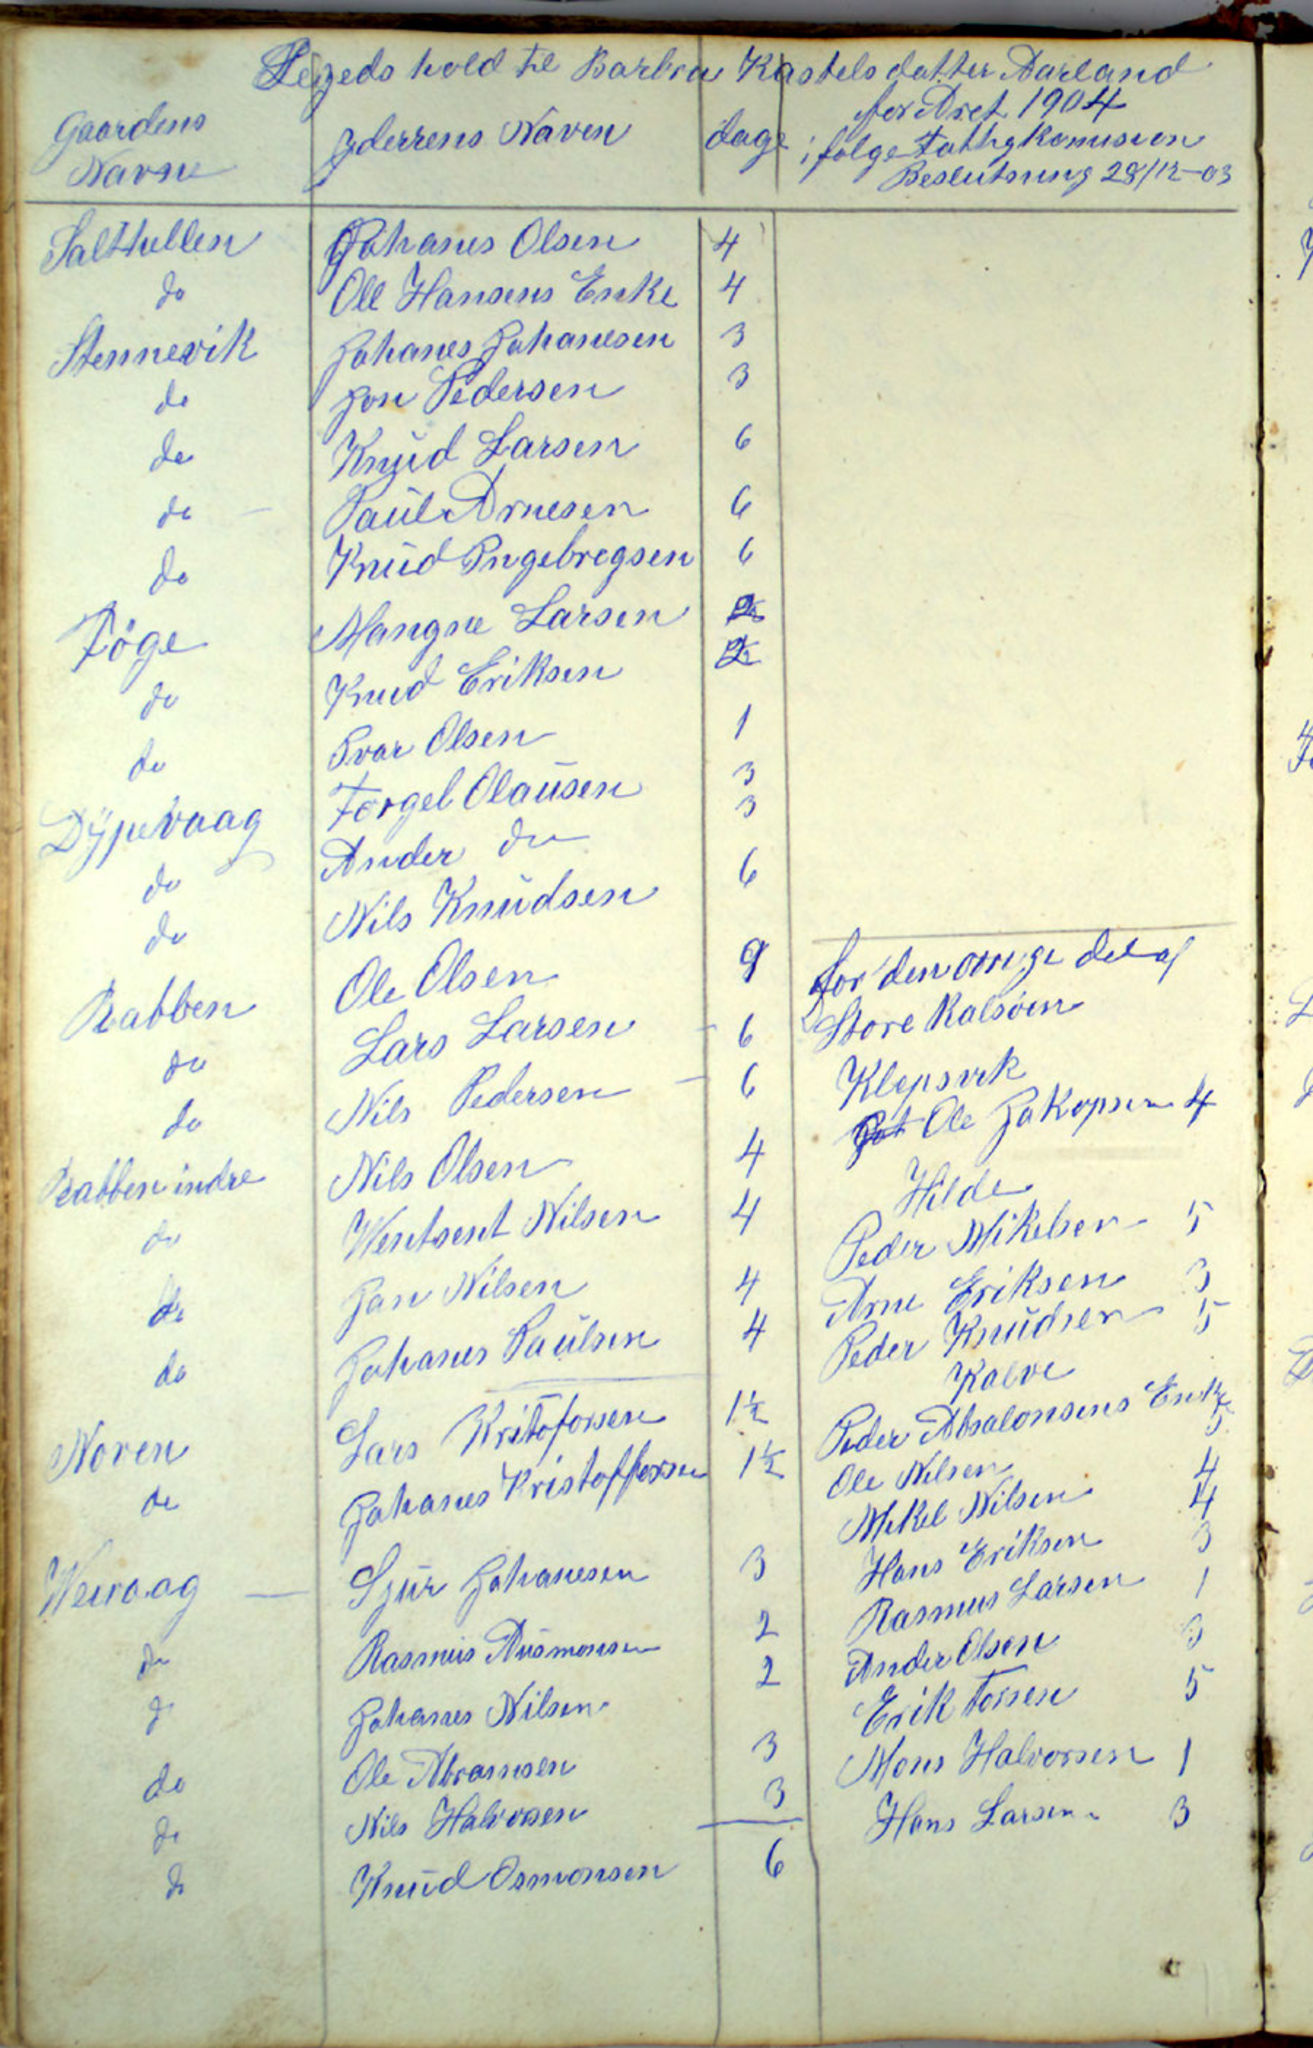 Legeds hold til Barbra Kastelsdatter Aarland
for Aret 1904
Gaardens Navne | Yderrens Naven | dage | i følge Fattigkomusion
Beslutning 28/12-03
Salthellen | Johanes Olsen | 4
do | Ole Hansens Enke | 4
Stennevik | Johanes Johanesen | 3
do | Jon Pedersen | 3
do | Knud Larsen | 6
do | Paul Arnesen | 6
do | Knud Ingebregsen | 6
Töge | Mangne Larsen
do | Knud Eriksen
do | Ivar Olsen | 1
Dypevaag | Torgel Olausen | 3
do | Ander do | 3
do | Nils Knudsen | 6
Rabben | Ole Olsen | 9
do | Lars Larsen | 6
do | Nils Pedersen | 6
Rabben indre | Nils Olsen | 4
do | Wentsent Nilsen | 4
do | Jan Nilsen | 4
do | Johanes Paulsen | 4
Noren | Lars Kristofersen | 1½
do | Johanes Kristoffersen | 1½
Weivaag | Sjur Johanesen | 3
do | Rasmus Rasmonsen | 2
do | Johanes Nilsen | 2
do | Ole Abramsen | 3
do | Nils Halvorsen | 3
do | Knud Osmonsen | 6
for den ovrige del af
Store Kalsöen
Klepsvik
Ole Jakopsen 4
Hilde
Peder Mikelsen 5
Arne Eriksen 3
Peder Knudsen 5
Kalve
Peder Absalonsens Enke 5
Ole Nilsen 4
Mikel Nilsen 4
Hans Eriksen 3
Rasmus Larsen 1
Ander Olsen 3
Erik Torsen 5
Mons Halvorsen 1
Hans Larsen 3